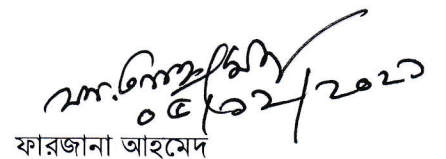 ০৫/১২/২০২১
ফারজানা আহমেদ